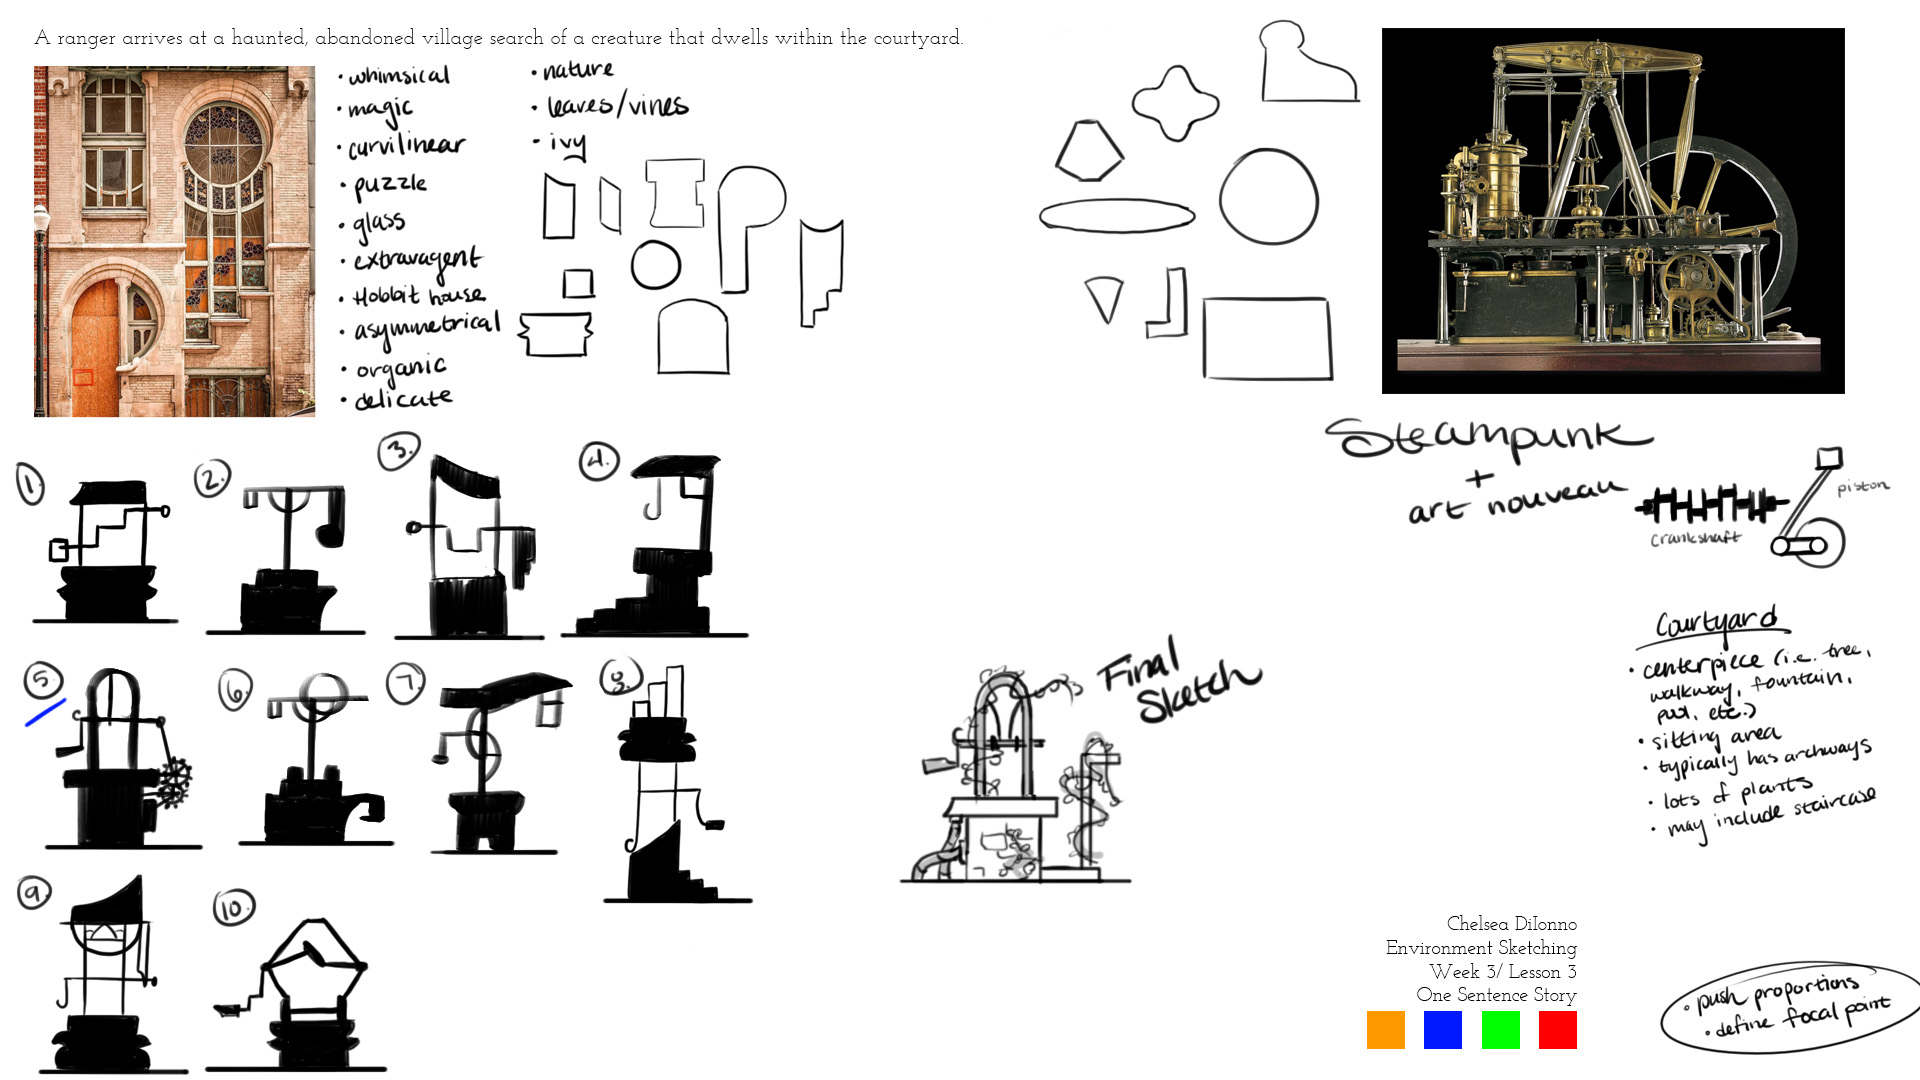 A ranger arrives at a haunted, abandoned village search of a creature that dwells within the courtyard.
• whimsical
• magic
• curvilinear
• puzzle
• glass
• extravagent
• Hobbit house
• asymmetrical
• organic
• delicate
• nature
• leaves/vines
- ivy
Steampunk
+
art nouveau
crankshaft
piston
Courtyard
• centerpiece (i.e. tree,
walkway, fountain,
pool, etc.)
• sitting area
• typically has archways
• lots of plants
• may include staircase
1.
2.
3.
4.
5.
6.
7.
8.
9.
10.
Final
Sketch
Chelsea DiIonno
Environment Sketching
Week 3/ Lesson 3
One Sentence Story
• push proportions
• define focal point